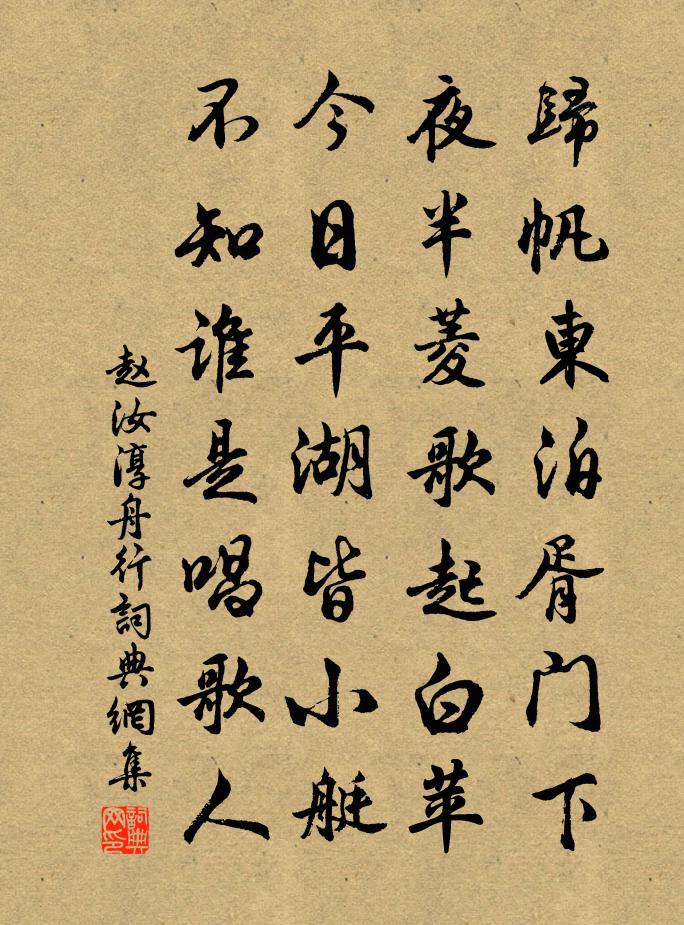 歸帆東泊胥门下
夜半菱歌起白苹
今日平湖皆小艇
不知誰是唱歌人
赵汝淳舟行詞典網集
詞典
网印